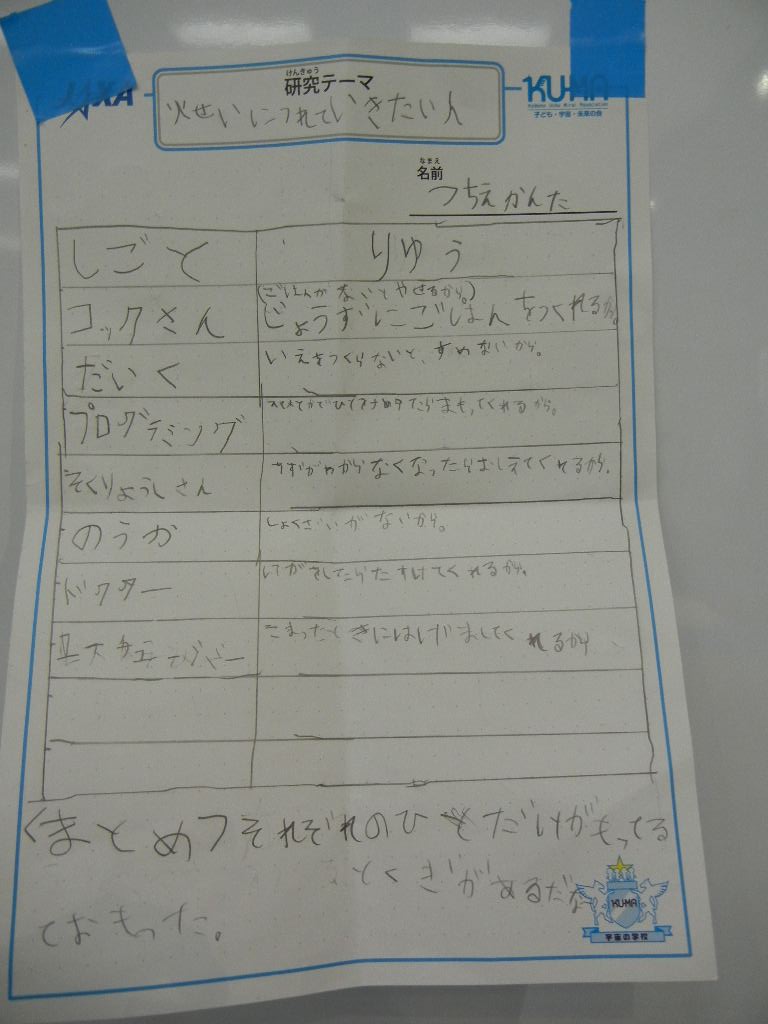 JAXA
けんきゅう
研究テーマ
火せいにつれていきたい人
KU-MA
子ども・宇宙・未来の会
なまえ
名前
つちえかんた
しごと
りゅう
コックさん
(ごはんがないとやせるから。)
じょうずにごはんをつくれるから。
だいく
いえをつくらないと、すめないから。
プログラミング
たらまもってくれるから。
そくりょうしさん
なくなったらおしえてくれるから。
のうか
しょくざいがないから。
ドクター
けがをしたらたすけてくれるから。
こまったときにはげましてくれるから
くまとめフそれぞれのひとだけがもってる
とくぎがあるだな
ておもった。
KU-MA
宇宙の学校